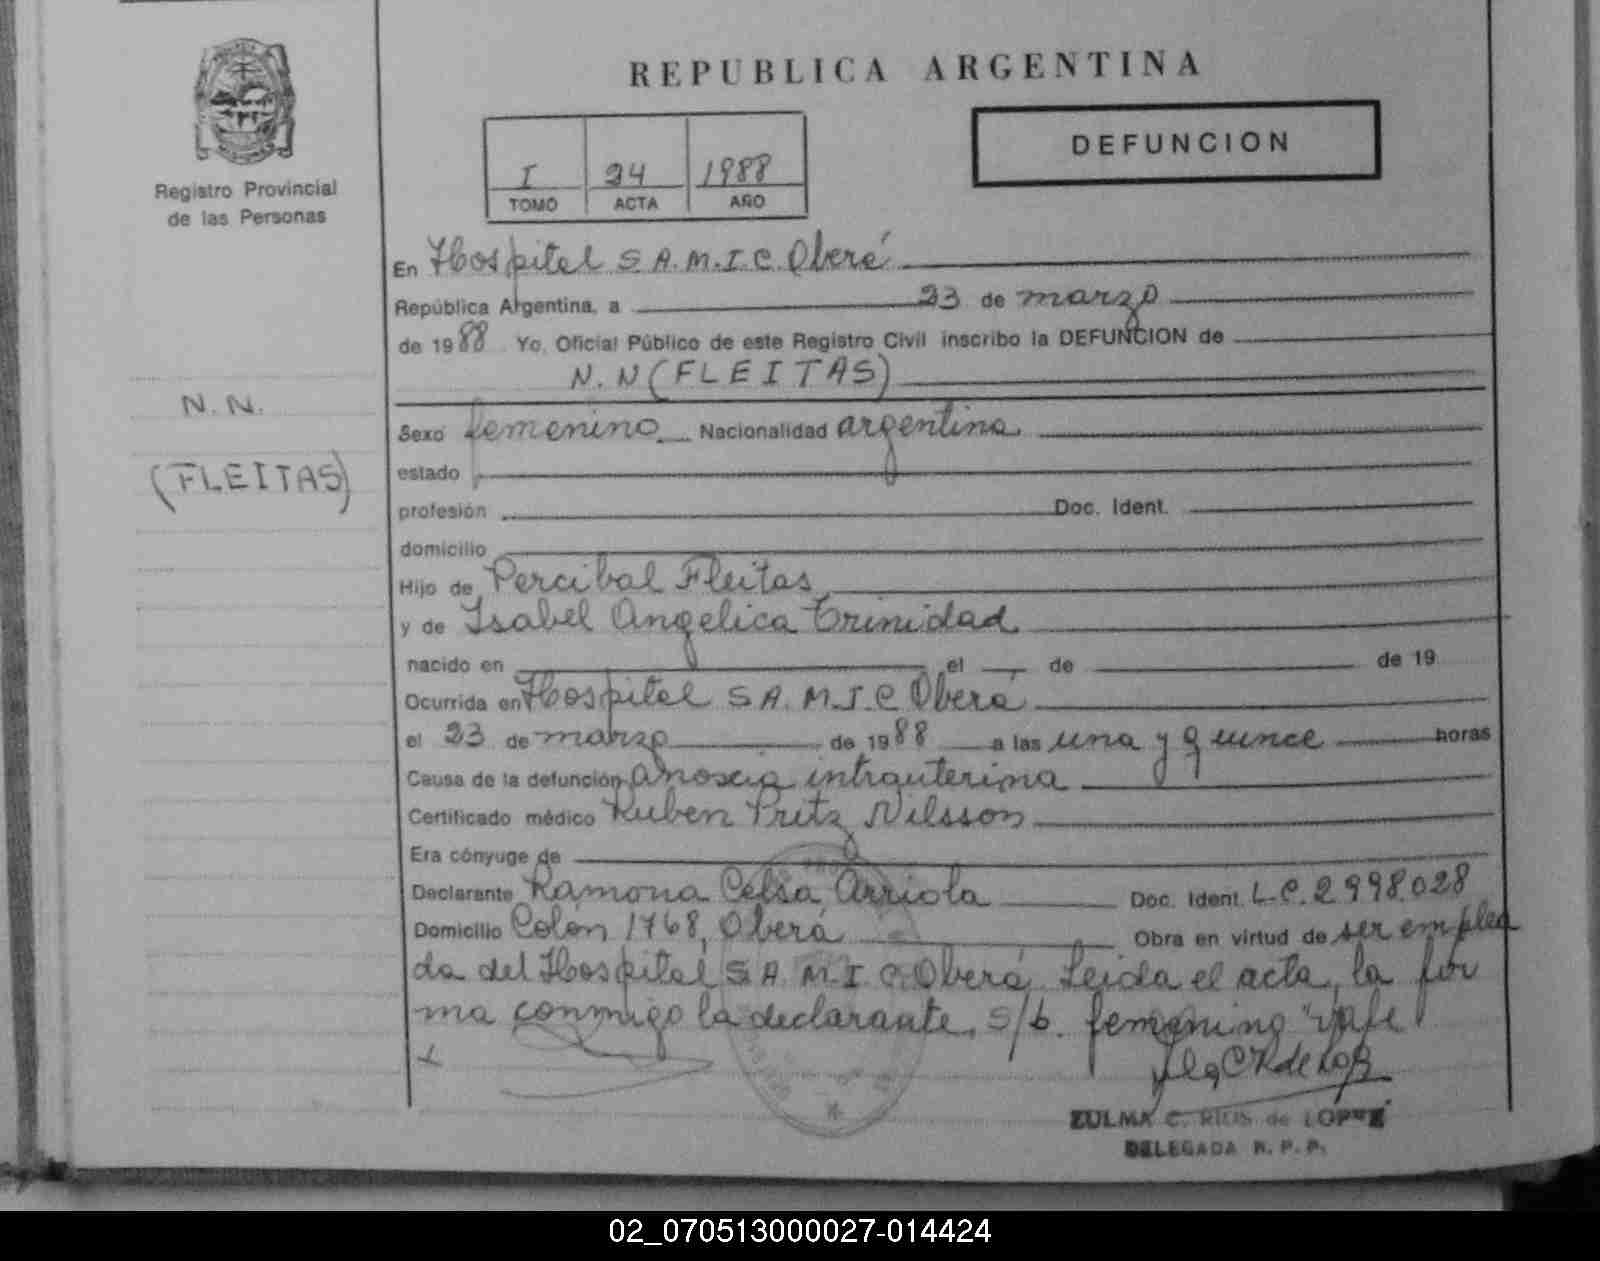 REPUBLICA ARGENTINA
Registro Provincial
de las Personas
I 24 1988
TOMO ACTA AÑO
DEFUNCION
En Hospital S.A.M.I.C. Oberá
República Argentina, a 23 de marzo
de 1988 Yo, Oficial Público de este Registro Civil inscribo la DEFUNCION de
N.N (FLEITAS)
N.N.
(FLEITAS)
Sexo femenino Nacionalidad argentina
estado
profesión Doc. Ident.
domicilio
Hijo de Percibal Fleitas
y de Isabel Angelica Trinidad
nacido en el de de 19
Ocurrida en Hospital S.A.M.I.C Oberá
el 23 de marzo de 1988 a las una y quince horas
Causa de la defunción anoxia intrauterina
Certificado médico Ruben Fritz Nilsson
Era cónyuge de
Declarante Ramona Celsa Arriola Doc. Ident. L.C. 2998.028
Domicilio Colón 1768, Oberá Obra en virtud de ser emplea
da del Hospital S.A.M.I.C Oberá Leida el acta, la fir
ma conmigo la declarante. S/b. femenino vale
ZULMA C. RIOS de LOPEZ
DELEGADA R.P.P.
02_070513000027-014424